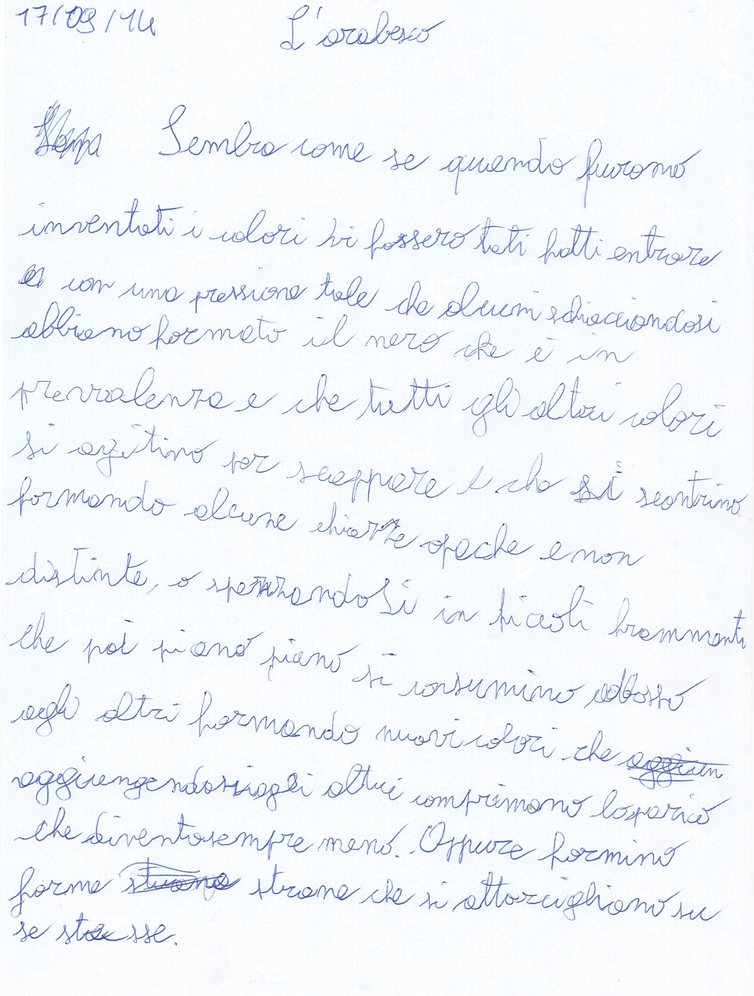 17/09/14
L'arabesco
Sembra come se quando furono
inventati i colori vi fossero tati fatti entrare
con una pressione tale che alcuni schiacciandosi
abbiano formato il nero che è in
prevalenza e che tutti gli altri colori
si agitino per scappare e che si scontrino
formando alcune chiazze opache e non
distinte, o spezzandosi in piccoli frammenti
che poi piano piano si consumino addosso
agli altri formando nuovi colori che
aggiungendosi agli altri comprimano lo spazio
che diventa sempre meno. Oppure formino
forme strane che si attorcigliano su
se stesse.